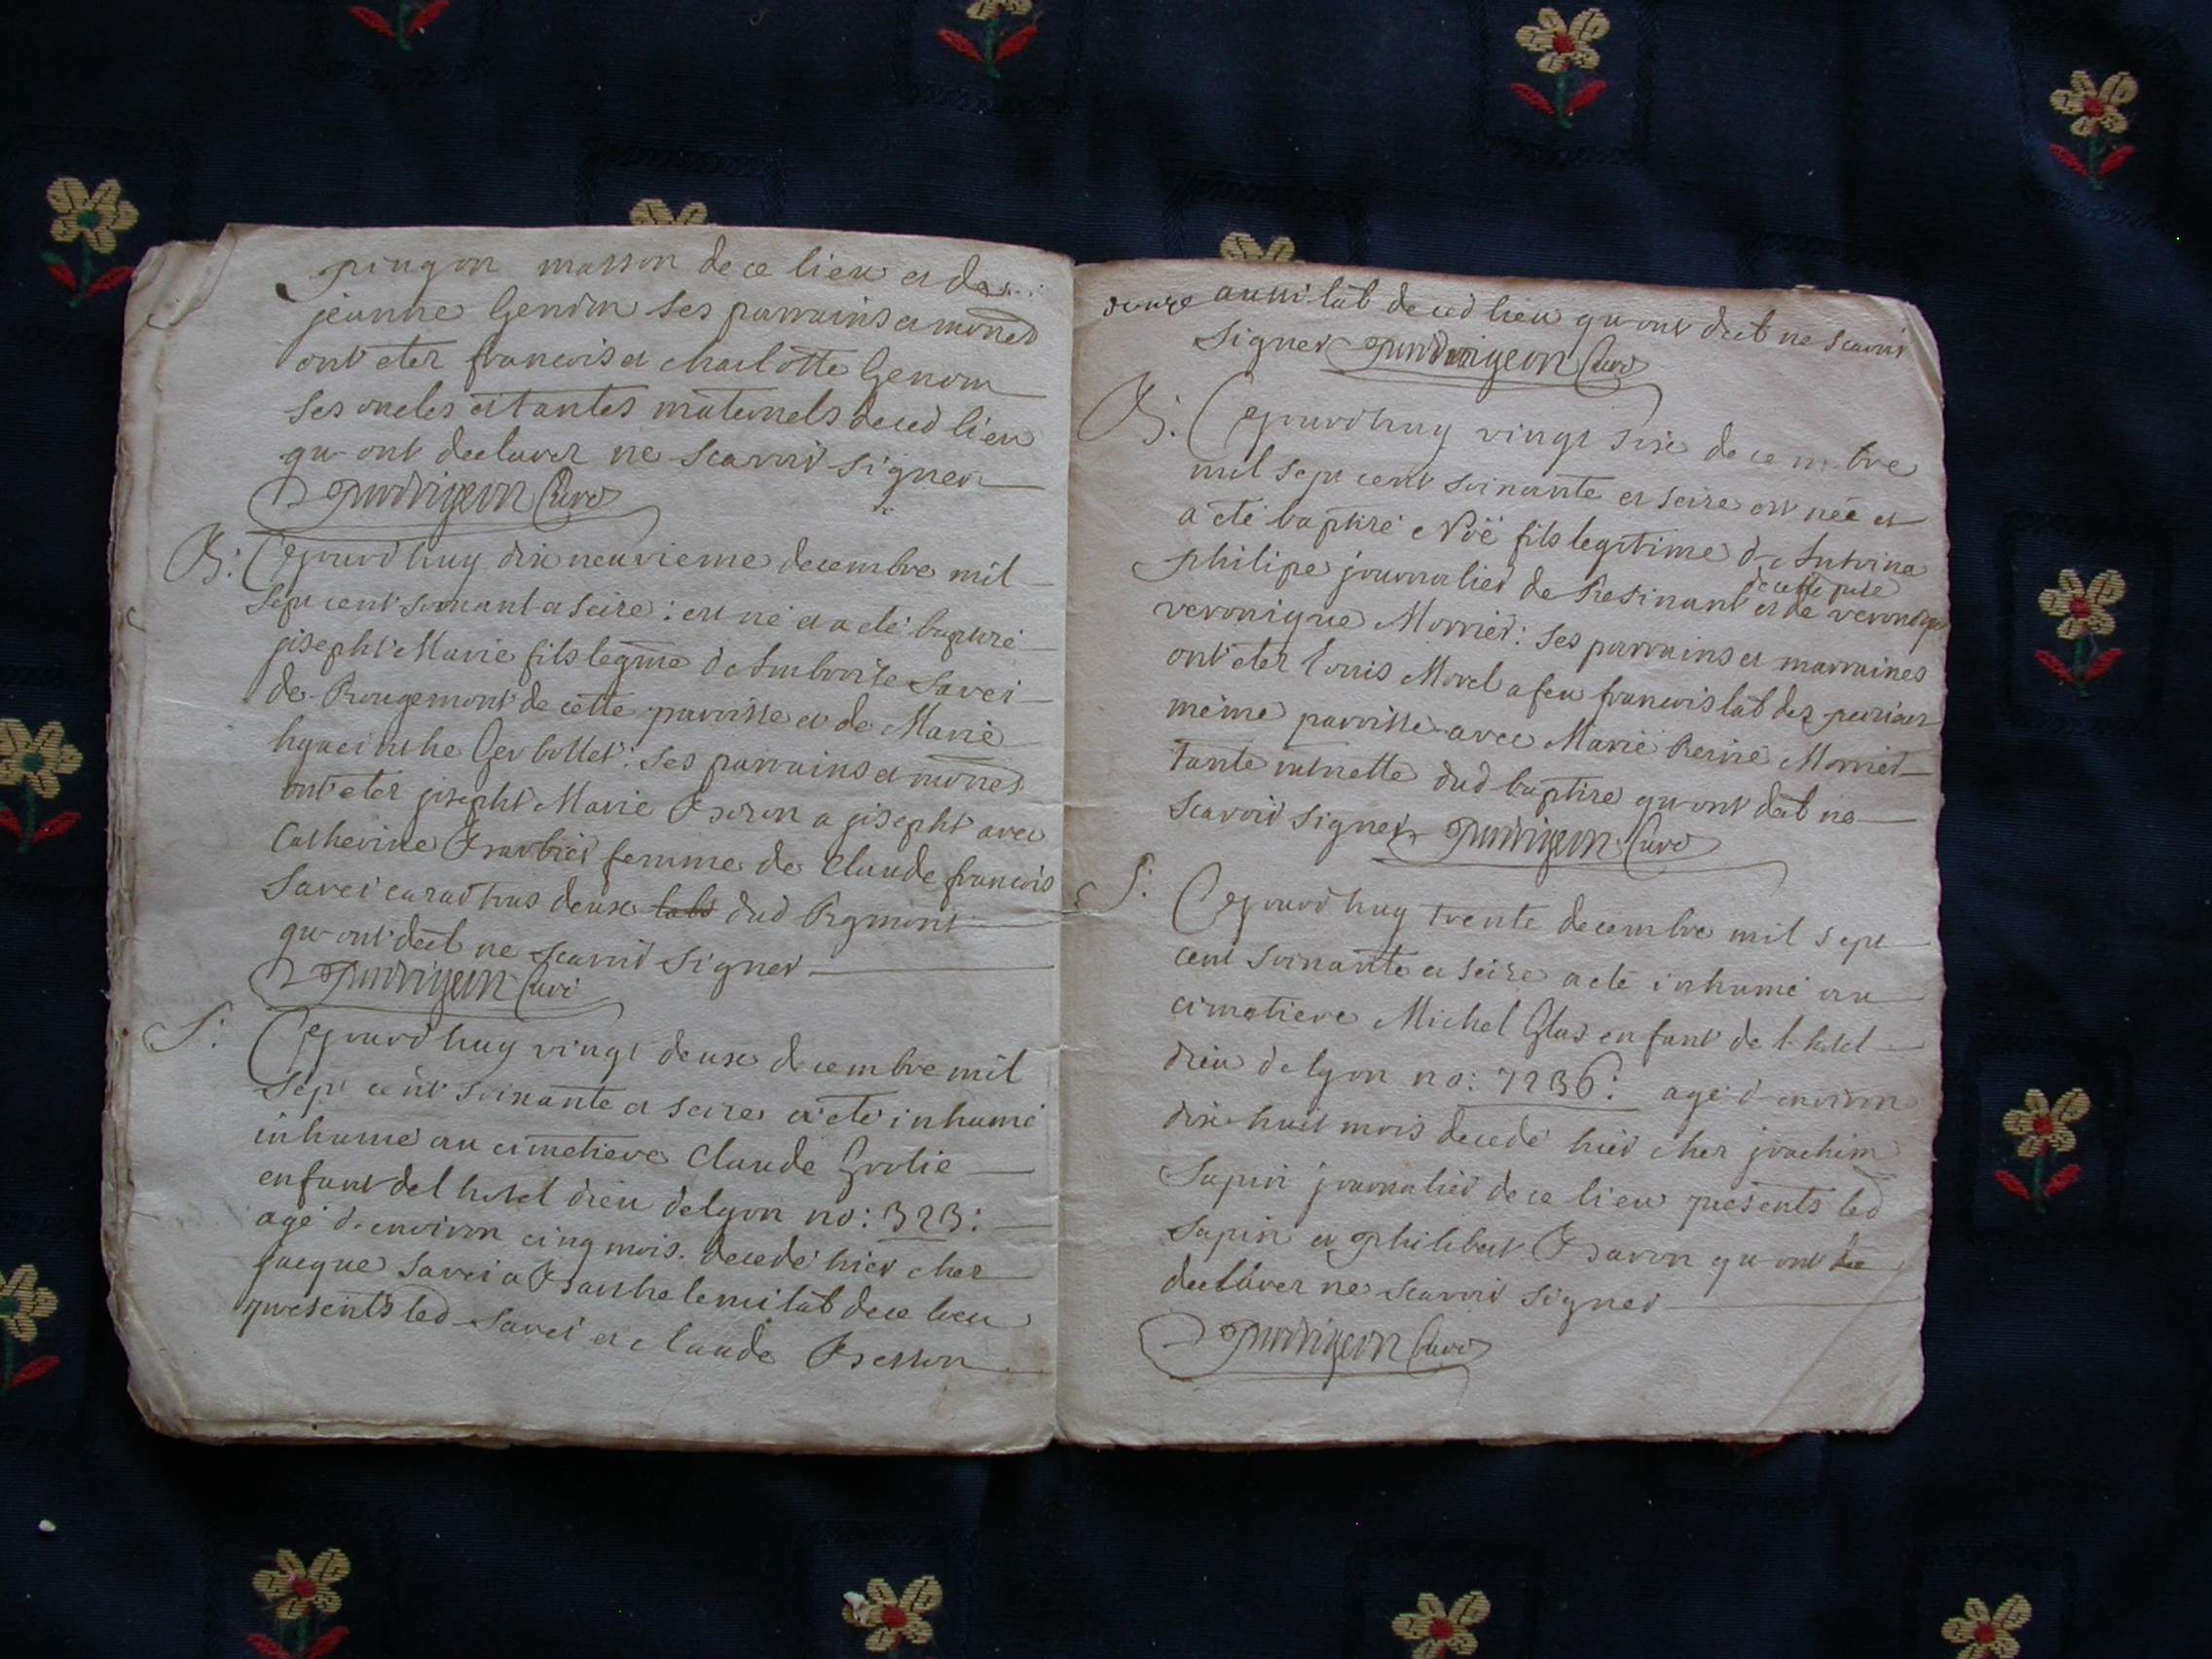 pingon masson de ce lieu et de
jeanne Genom ses parrains et mönes
ont eter francois et charlotte Genom
ses oncles et tantes maternels decéd lieu
qu ont declarer ne scavoir signer
Curé
B: Cejourdhuy dixneuvieme decembre mil
sept cent soixant et seize : est né et a eté baptizé
joseph Marie fils legme de Savei
de Rougemont de cette parroisse et de Marie
hyacinthe : ses parrains et mönes
ont eter joseph Marie a joseph avec
Catherine femme de Claude francois
Savei deux labs dud Rgmont
qu ont decl ne scavoir signer
Curé
S: Cejourdhuy vingt deux decembre mil
sept cent soixante et seize a eté inhumé
inhumé au cimetiere Claude Grolie
enfant del hotel dieu delyon no: 323:
agé d environ cinq mois. decedé hier cher
jacque Savei a Barthelemi lab de ce lieu
presents led Savei et claude Besson
deuxe aussi lab de ced lieu qu ont declt ne scavoir
signer Curé
B: Cejourdhuy vingt sixe decembre
mil sept cent soixante et seize est née et
a eté baptizé Noë fils legitime d Antoine
philipe journalier de Resinant et de veronique
de cette pare
veronique Morrier: ses parrains et marraines
ont eter louis Morel a feu francois lab dez
même parroisse avec Marie Reine Morrier
tante dud baptize qu ont declt ne
scavoir signer Curé
S: Cejourdhuy trente decembre mil sept
cent soixante et seize a eté inhumé au
cimetiere Michel Glas enfant de l hotel
dieu de lyon no: 7236: agé d environ
dixe huit mois decedé hier cher joachim
Sapin journalier de ce lieu presents led
Sapin et philibert Baron qu ont dec
declarer ne scavoir signer
Curé